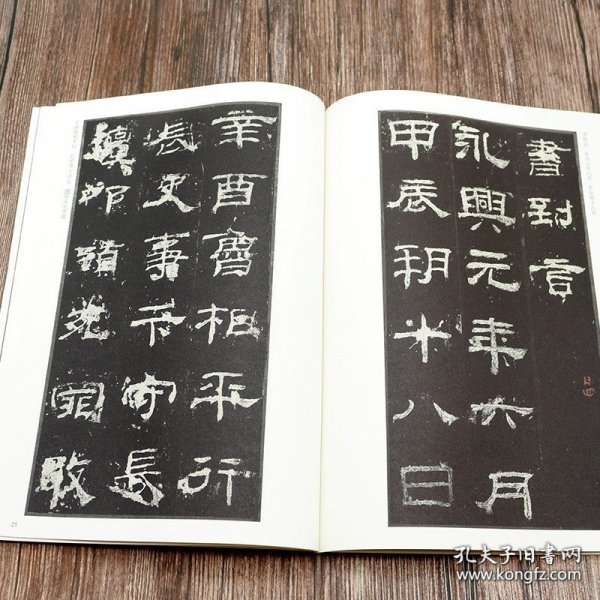 書到言
永興元年六月
甲辰朔十八日
辛酉魯相平行
長史事卞守長
擅叩頭死罪敢
23
孔夫子旧书网
www.kongfz.com